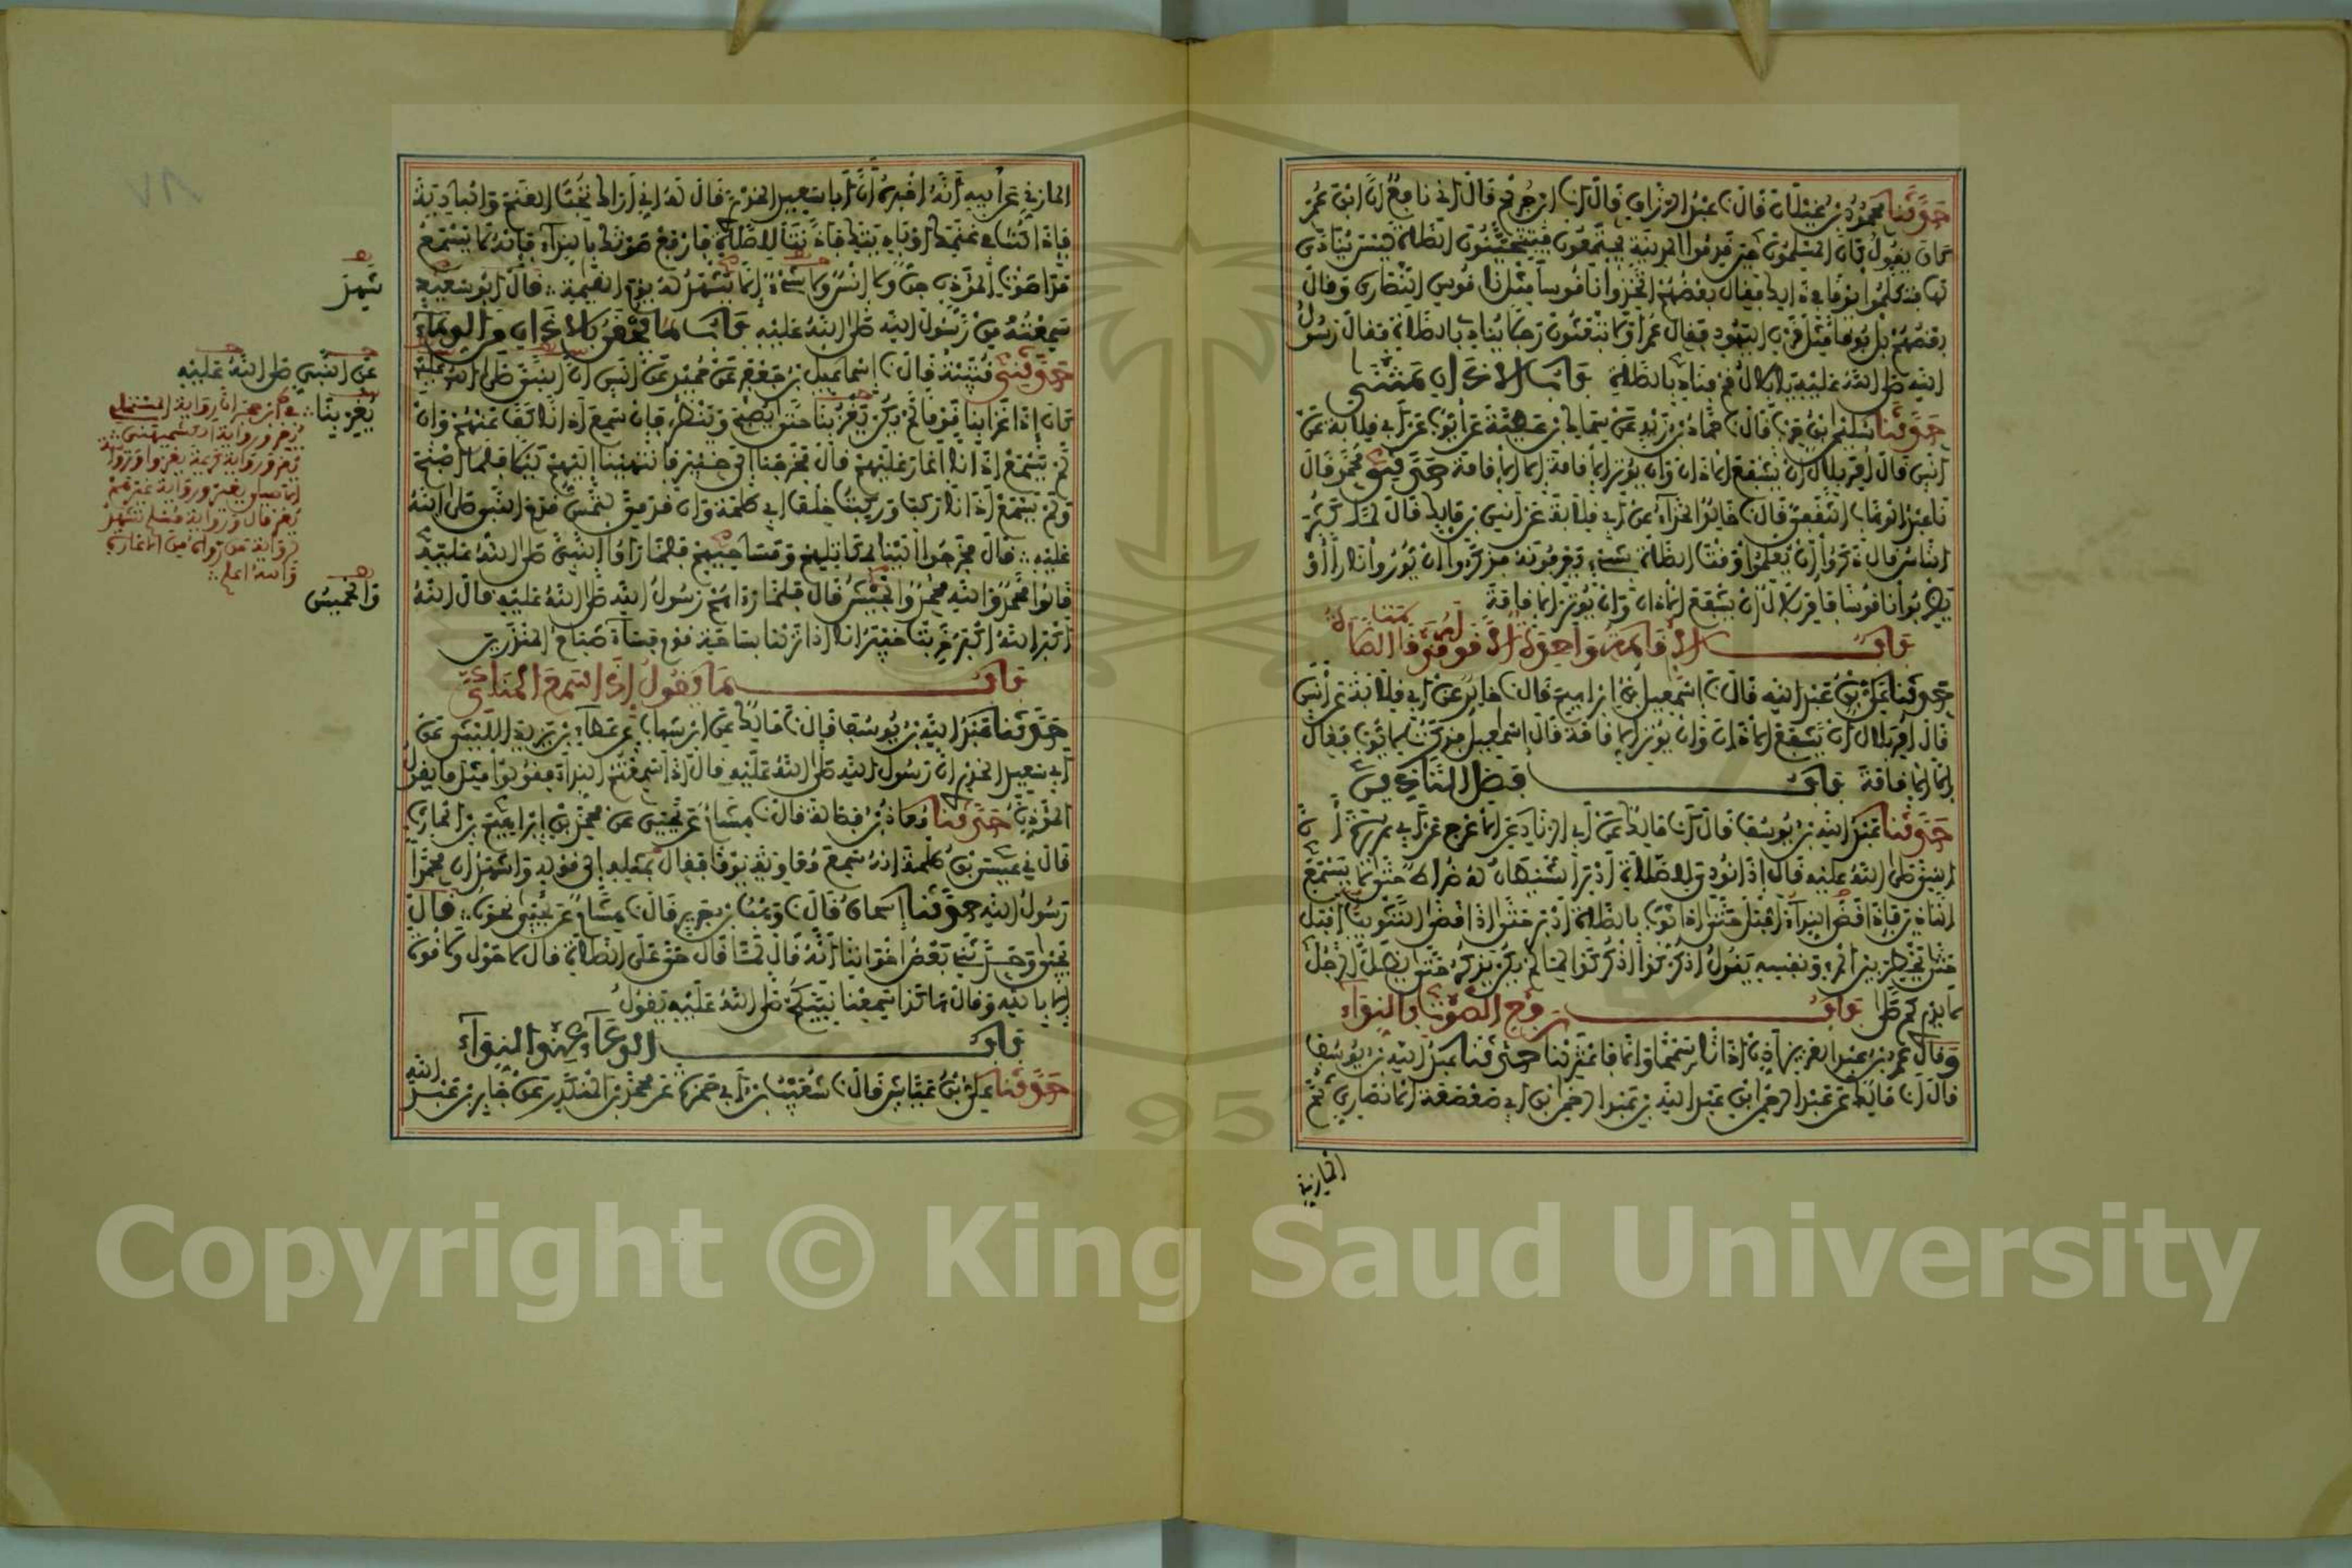 حدثنا محمود بن غيلان قال نا عبد الرزاق قال انا ابن جريج قال اني نافع ان ابن عمر
كان يقول كان المسلمون حين قدموا المدينة يجتمعون فيتحينون الصلاة ليس ينادى
لها فتكلموا يوما في ذلك فقال بعضهم اتخذوا ناقوسا مثل ناقوس النصارى وقال
بعضهم بل بوقا مثل قرن اليهود فقال عمر اولا تبعثون رجلا ينادي بالصلاة فقال رسول
الله صلى الله عليه يا بلال قم فناد بالصلاة باب الاذان مثنى
حدثنا سليمان بن حرب قال نا حماد بن زيد عن سماك بن عطية عن ايوب عن ابي قلابة عن
انس قال امر بلال ان يشفع الاذان وان يوتر الاقامة الا الاقامة حدثني محمد قال
نا عبد الوهاب الثقفي قال نا خالد الحذاء عن ابي قلابة عن انس بن مالك قال لما كثر
الناس قال ذكروا ان يعلموا وقت الصلاة بشيء يعرفونه فذكروا ان يوروا نارا او
يضربوا ناقوسا فامر بلال ان يشفع الاذان وان يوتر الاقامة
باب الاقامة واحدة الا قوله قد قامت الصلاة
حدثنا علي بن عبد الله نا اسمعيل بن ابراهيم قال نا خالد عن ابي قلابة عن انس
قال امر بلال ان يشفع الاذان وان يوتر الاقامة قال اسمعيل فذكرت لايوب فقال
الا الاقامة باب فضل التاذين
حدثنا عبد الله بن يوسف قال انا مالك عن ابي الزناد عن الاعرج عن ابي هريرة ان
النبي صلى الله عليه قال اذا نودي للصلاة ادبر الشيطان له ضراط حتى لا يسمع
التاذين فاذا قضى النداء اقبل حتى اذا ثوب بالصلاة ادبر حتى اذا قضى التثويب اقبل
حتى يخطر بين المرء ونفسه يقول اذكر كذا اذكر كذا لما لم يكن يذكر حتى يظل الرجل
لا يدري كم صلى باب رفع الصوت بالنداء
وقال عمر بن عبد العزيز اذن اذانا سمحا والا فاعتزلنا حدثنا عبد الله بن يوسف
قال انا مالك عن عبد الرحمن بن عبد الله بن عبد الرحمن بن ابي صعصعة الانصاري ثم
المازني
المازني عن ابيه انه اخبره ان ابا سعيد الخدري قال له اني اراك تحب الغنم والبادية
فاذا كنت في غنمك او باديتك فاذنت للصلاة فارفع صوتك بالنداء فانه لا يسمع
مدا صوت المؤذن جن ولا انس ولا شيء الا يشهد له يوم القيمة قال ابو سعيد
سمعته من رسول الله صلى الله عليه باب ما يحقن بالاذان من الدماء
حدثني قتيبة قال نا اسماعيل بن جعفر عن حميد عن انس ان النبي صلى الله عليه
كان اذا غزا بنا قوما لم يكن يغز بنا حتى يصبح وينظر فان سمع اذانا كف عنهم وان
لم يسمع اذانا اغار عليهم قال فخرجنا الى خيبر فانتهينا اليهم ليلا فلما اصبح
ولم يسمع اذانا ركب وركبت خلف ابي طلحة وان قدمي لتمس قدم النبي صلى الله
عليه قال فخرجوا الينا بمكاتلهم ومساحيهم فلما راوا النبي صلى الله عليه
قالوا محمد والله محمد والجيش قال فلما راهم رسول الله صلى الله عليه قال الله
اكبر الله اكبر خربت خيبر انا اذا نزلنا بساحة قوم فساء صباح المنذرين
باب ما يقول اذا سمع المنادي
حدثنا عبد الله بن يوسف قال نا مالك عن ابن شهاب عن عطاء بن يزيد الليثي عن
ابي سعيد الخدري ان رسول الله صلى الله عليه قال اذا سمعتم النداء فقولوا مثل ما يقول
المؤذن حدثنا معاذ بن فضالة قال نا هشام عن يحيى عن محمد بن ابراهيم بن الحارث
قال ني عيسى بن طلحة انه سمع معاوية يوما فقال بمثله الى قوله واشهد ان محمدا
رسول الله حدثنا اسحاق قال نا وهب بن جرير قال نا هشام عن يحيى نحوه قال
يحيى وحدثني بعض اخواننا انه قال لما قال حي على الصلاة قال لا حول ولا قوة
الا بالله وقال هكذا سمعنا نبيكم صلى الله عليه يقول
باب الدعاء عند النداء
حدثنا علي بن عياش قال نا شعيب بن ابي حمزة عن محمد بن المنكدر عن جابر بن عبد الله
شهد
عن النبي صلى الله عليه
يغر بنا
والخميس
والله اعلم
Copyright © King Saud University